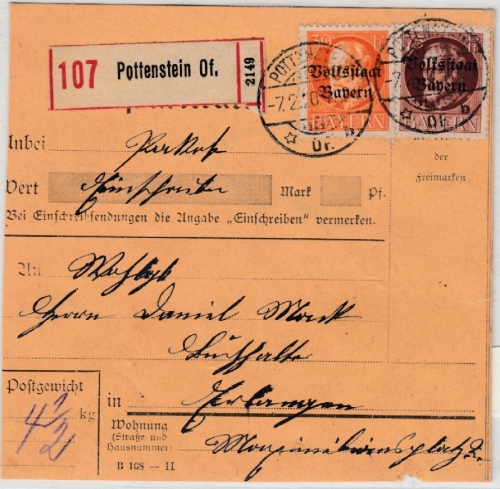 107 Pottenstein Of. 2149
30
Volksstaat
Bayern
Volksstaat
Bayern
BAYERN
POTTENSTEIN
-7.2.20
Of.
der
Freimarken
Anbei Paket
Wert Einschreiben Mark Pf.
Bei Einschreibsendungen die Angabe „Einschreiben" vermerken.
An Wohlgb
Herrn Daniel Mack
Buchhalter
Postgewicht
4 1/2 kg
in Erlangen
Wohnung
(Straße und
Hausnummer)
B 168 — II